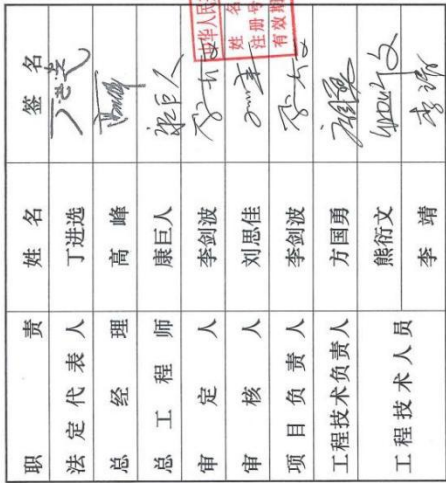 职责 姓名 签名
法定代表人 丁进选
总经理 高峰
总工程师 康巨人 康巨人
审定人 李剑波
审核人 刘思佳
项目负责人 李剑波
工程技术负责人 方国勇
工程技术人员 熊衍文
李靖 李靖
华人民
姓名
注册号
有效期